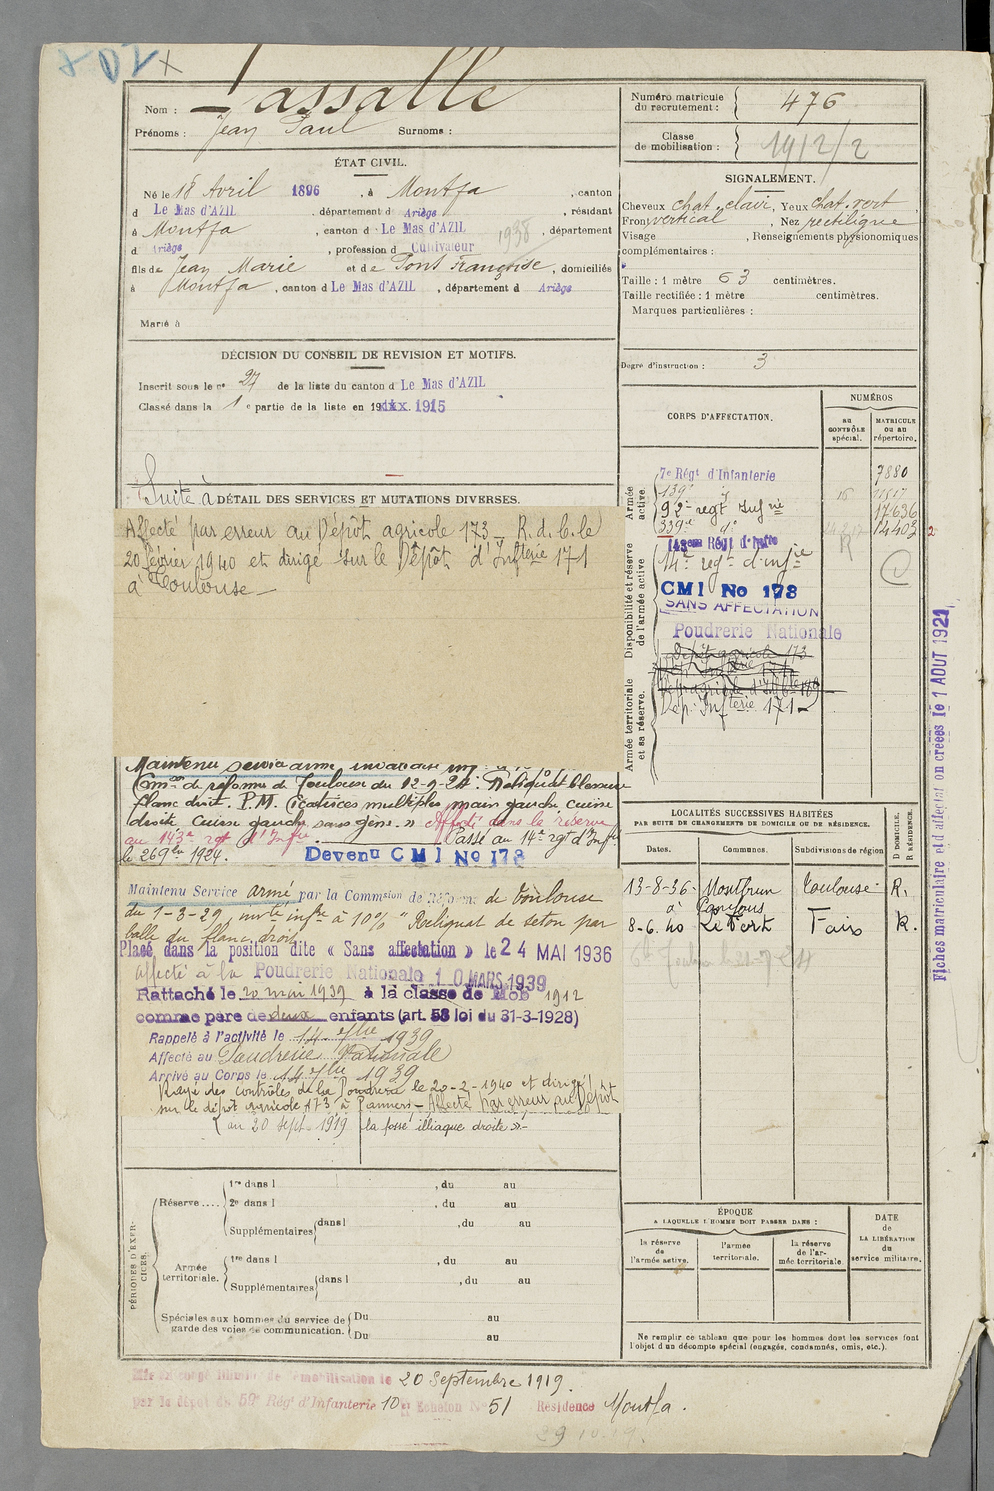 Nom : Lassalle
Prénoms : Jean Paul Surnoms :
ÉTAT CIVIL.
Né le 18 Avril 1896, à Montfa, canton
d Le Mas d'AZIL, département d Ariège, résidant
à Montfa, canton d Le Mas d'AZIL, département
d Ariège, profession d Cultivateur
1938
fils de Jean Marie et de Pont Françoise, domiciliés
à Montfa, canton d Le Mas d'AZIL, département d Ariège
Marié à
DÉCISION DU CONSEIL DE REVISION ET MOTIFS.
Inscrit sous le n° 27 de la liste du canton d Le Mas d'AZIL
Classé dans la 1 e partie de la liste en 19 1915
Suite à DÉTAIL DES SERVICES ET MUTATIONS DIVERSES.
Affecté par erreur au Dépôt agricole 173 - R.d.C. le
20 février 1940 et dirigé sur le Dépôt d'Infterie 171
à Toulouse -
Maintenu service armé
Comon de réforme de Toulouse du 12-9-24. Reliquat blessure
flanc droit. P.M. Cicatrices multiples main gauche cuisse
droite cuisse gauche sans gêne. » Affecté dans la réserve
au 143e rgt d'Infie Passé au 14e rgt d'Infie
le 1924.
Devenu CMI No 178
Maintenu Service armé par la Commsion de Réforme de Toulouse
du 1-3-29, invté infre à 10% "Reliquat de seton par
balle du flanc droit
Placé dans la position dite « Sans affectation » le 24 MAI 1936
affecté à la Poudrerie Nationale 10 MARS 1939
Rattaché le 20 mai 1939 à la classe de Mob 1912
comme père de deux enfants (art. 58 loi du 31-3-1928)
Rappelé à l'activité le 14 1939
Affecté au Poudrerie Nationale
Arrivé au Corps le 14 1939
Rayé des contrôles de la Poudrerie le 20-2-1940 et dirigé
sur le dépôt agricole 173 à Pamiers - Affecté par erreur au Dépôt
au 20 sept. 1919 la fosse illiaque droite » -
PÉRIODES D'EXERCICES.
Réserve .... 1re dans l , du au
2e dans l , du au
Supplémentaires dans l , du au
Armée territoriale. 1re dans l , du au
Supplémentaires dans l , du au
Spéciales aux hommes du service de
garde des voies de communication. Du au
Du au
Numéro matricule
du recrutement : 476
Classe
de mobilisation : 1912/2
SIGNALEMENT.
Cheveux chat. clair, Yeux chat. vert,
Front vertical, Nez rectiligne
Visage , Renseignements physionomiques
complémentaires :
Taille : 1 mètre 63 centimètres.
Taille rectifiée : 1 mètre centimètres.
Marques particulières :
Degré d'instruction : 3
CORPS D'AFFECTATION.
NUMÉROS
au
CONTRÔLE
spécial.
MATRICULE
ou au
répertoire.
Armée
active.
7e Régt d'Infanterie 7880
139e
92e regt Infrie 17636
339e do 14403 2
Disponibilité et réserve
de l'armée active.
143eme Régt d'Infte
14e regt d'infie R
CMI No 178
SANS AFFECTATION
Poudrerie Nationale
Armée territoriale
et sa réserve.
Dépôt agricole 173
Dép. Infterie 171 -
LOCALITÉS SUCCESSIVES HABITÉES
PAR SUITE DE CHANGEMENTS DE DOMICILE OU DE RÉSIDENCE.
Dates. Communes. Subdivisions de région
D DOMICILE.
R RÉSIDENCE.
13-8-36- Montbrun Toulouse R.
8-6.40 Foix R.
ÉPOQUE
A LAQUELLE L'HOMME DOIT PASSER DANS :
la réserve
de
l'armée active.
l'armée
territoriale.
la réserve
de l'ar-
mée territoriale
DATE
de
LA LIBÉRATION
du
service militaire.
Ne remplir ce tableau que pour les hommes dont les services font
l'objet d'un décompte spécial (engagés, condamnés, omis, etc.).
Fiches matriculaire et d'affectation créées le 1 AOUT 1921
Mis en congé illimité de démobilisation le 20 Septembre 1919.
par le dépôt du 59e Régt d'Infanterie 10e Echelon No 51 Résidence Montfa.
29 10.19.